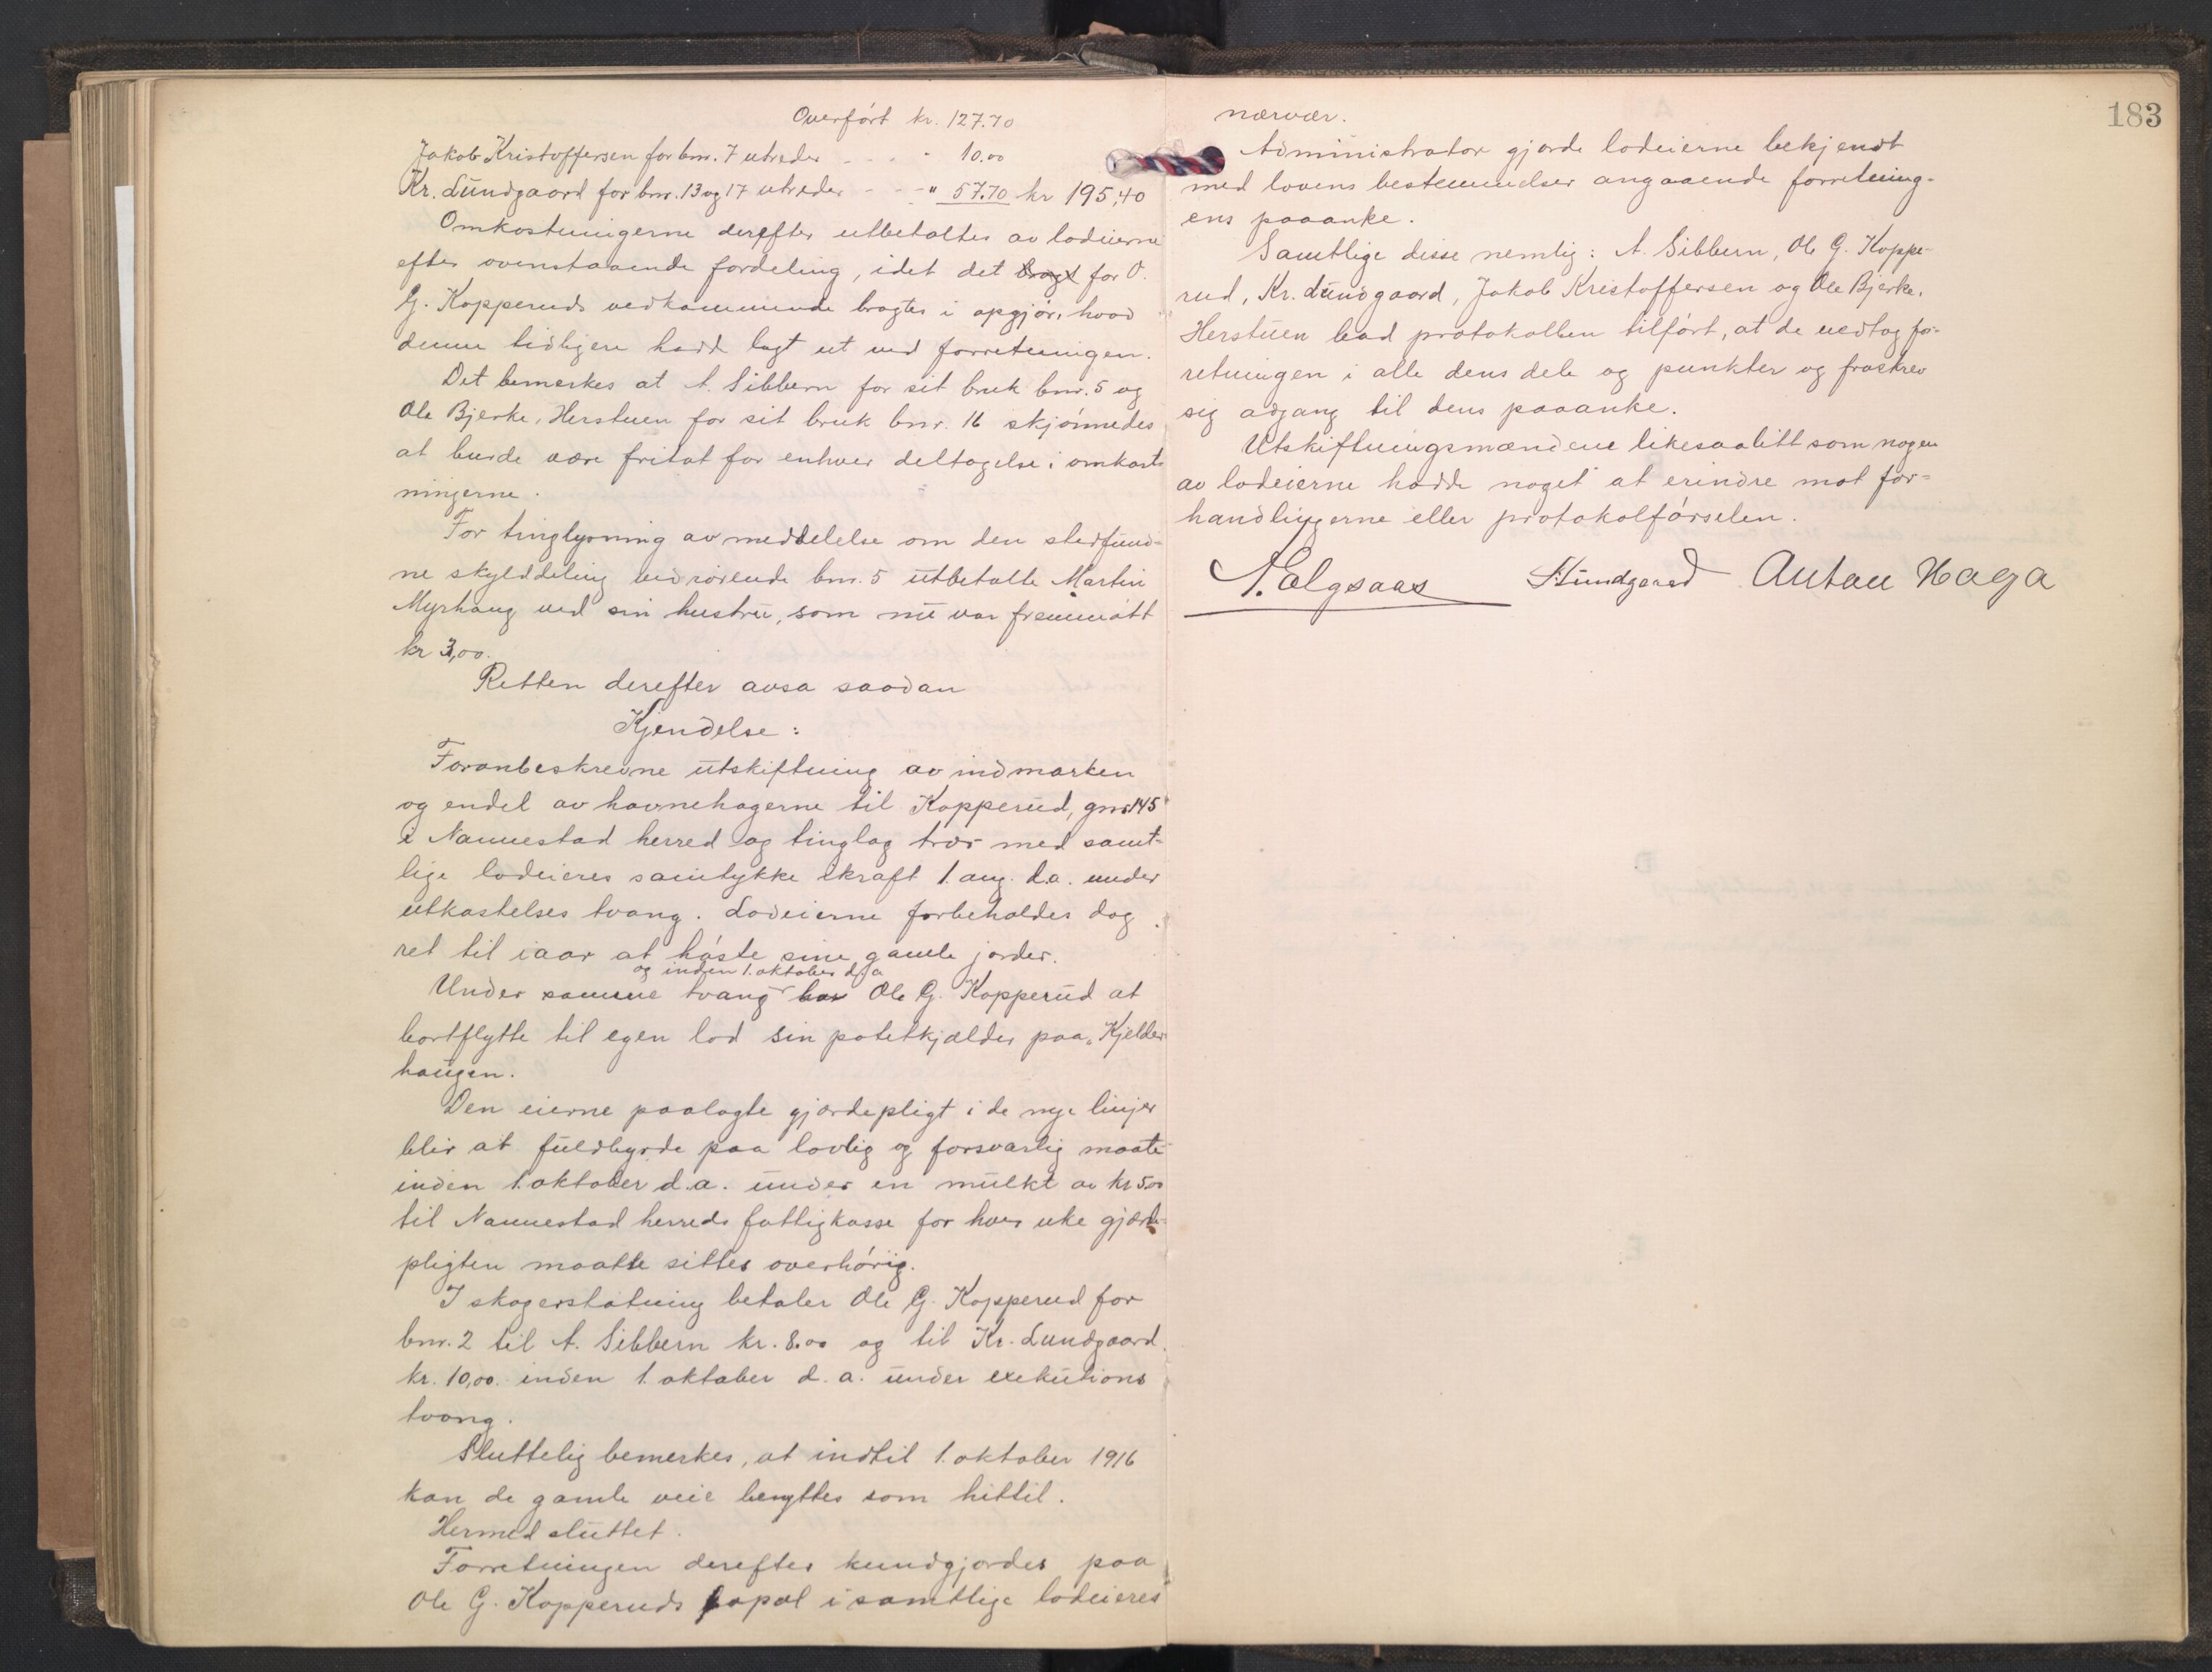 Overført kr. 127.70
Jakob Kristoffersen for bnr. 7 utreder - - - " 10.00
Kr. Lundgaard for bnr. 13 og 17 utreder - - - " 57.70 kr 195,40
Omkostningerne derefter utbetaltes av lodeierne
efter ovenstaaende fordeling, idet det bragt for O.
G. Kopperuds vedkommende bragtes i opgjør, hvad
denne tidligere hadd lagt ut ved forretningen.
Det bemerkes at A. Sibbern for sit bruk bnr. 5 og
Ole Bjerke, Herstuen for sit bruk bnr. 16 skjønnedes
at burde være fritat for enhver deltagelse i omkost-
ningerne.
For tinglysning av meddelelse om den stedfund-
ne skylddeling vedrørende bnr. 5 utbetalte Martin
Myrhaug ved sin hustru, som nu var fremmøtt
kr 3,00.
Retten derefter avsa saadan
Kjendelse:
Foranbeskrevne utskiftning av indmarken
og endel av havnehagerne til Kopperud, gnr 145
i Nannestad herred og tinglag trær med samt-
lige lodeieres samtykke ikraft 1. aug. d.a. under
utkastelses tvang. Lodeierne forbeholdes dog
ret til iaar at høste sine gamle jorder.
og inden 1. oktober d. a
Under samme tvang har Ole G. Kopperud at
bortflytte til egen lod sin potetkjælder paa „Kjelder-
haugen.
Den eierne paalagte gjærdepligt i de nye linjer
blir at fuldbyrde paa lovlig og forsvarlig maate
inden 1. oktober d.a. under en mulkt av kr 5.00
til Nannestad herreds fattigkasse for hver uke gjærde-
pligten maatte sittes overhørig.
I skogerstatning betaler Ole G. Kopperud for
bnr. 2 til A. Sibbern kr. 8.00 og til Kr. Lundgaard
kr. 10,00. inden 1. oktober d. a. under exekutions
tvang.
Sluttelig bemerkes, at indtil 1. oktober 1916
kan de gamle veie benyttes som hittil.
Hermed sluttet.
Forretningen derefter kundgjordes paa
Ole G. Kopperuds bopæl i samtlige lodeieres
183
nærvær.
Administrator gjorde lodeierne bekjendt
med lovens bestemmelser angaaende forretning-
ens paaanke.
Samtlige disse nemlig: A. Sibbern, Ole G. Koppe-
rud, Kr. Lundgaard, Jakob Kristoffersen og Ole Bjerke,
Herstuen bad protokollen tilført, at de vedtog for-
retningen i alle dens dele og punkter og fraskrev
sig adgang til dens paaanke.
Utskiftningsmændene likesaalitt som nogen
av lodeierne hadde noget at erindre mot for-
handlingerne eller protokolførselen.
Anton Haga